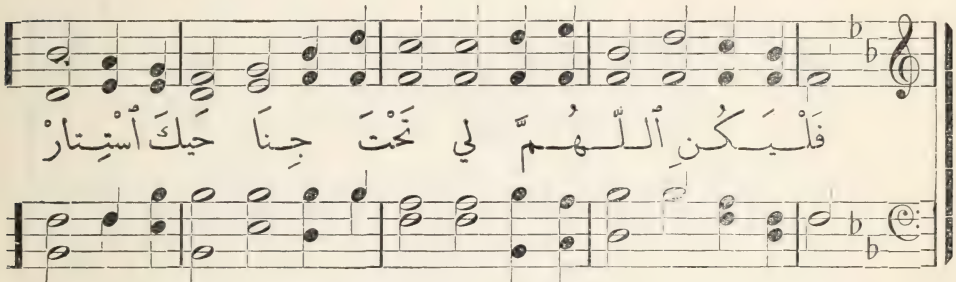 فَلْيَكُنِ ٱللّٰهُمَّ لي تَحْتَ جِنَا حَيكَ ٱسْتِتارْ